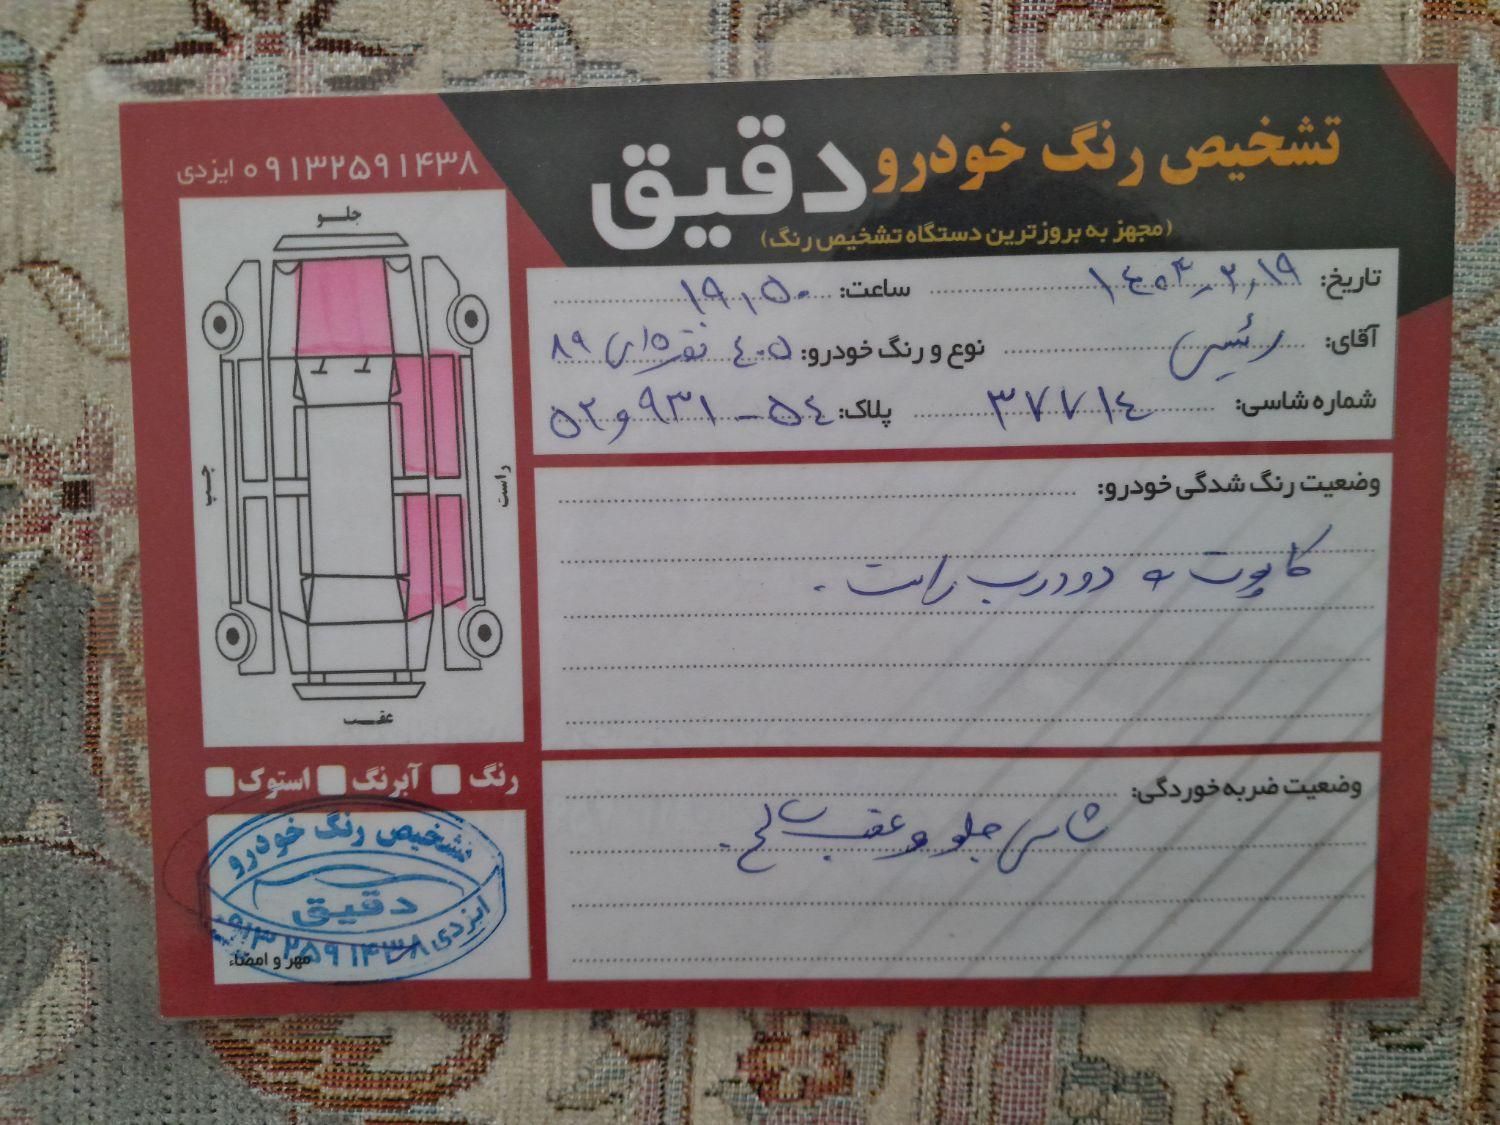 تشخیص رنگ خودرو دقیق
(مجهز به بروزترین دستگاه تشخیص رنگ)
۰۹۱۳۲۵۹۱۴۳۸ ایزدی
تاریخ: ۱۴۰۳,۲,۱۹ ساعت: ۱۹,۵۰
آقای: رئیسی نوع و رنگ خودرو: ۴۰۵ نقره‌ای ۸۹
شماره شاسی: ۳۷۷۱۴ پلاک: ۵۴-۹۳۱و۵۲
وضعیت رنگ شدگی خودرو:
کاپوت و دو درب راست.
وضعیت ضربه خوردگی:
شاسی جلو و عقب سالم.
جلو
چپ
راست
عقب
رنگ آبرنگ استوک
تشخیص رنگ خودرو
دقیق
ایزدی ۰۹۱۳۲۵۹۱۴۳۸
مهر و امضاء